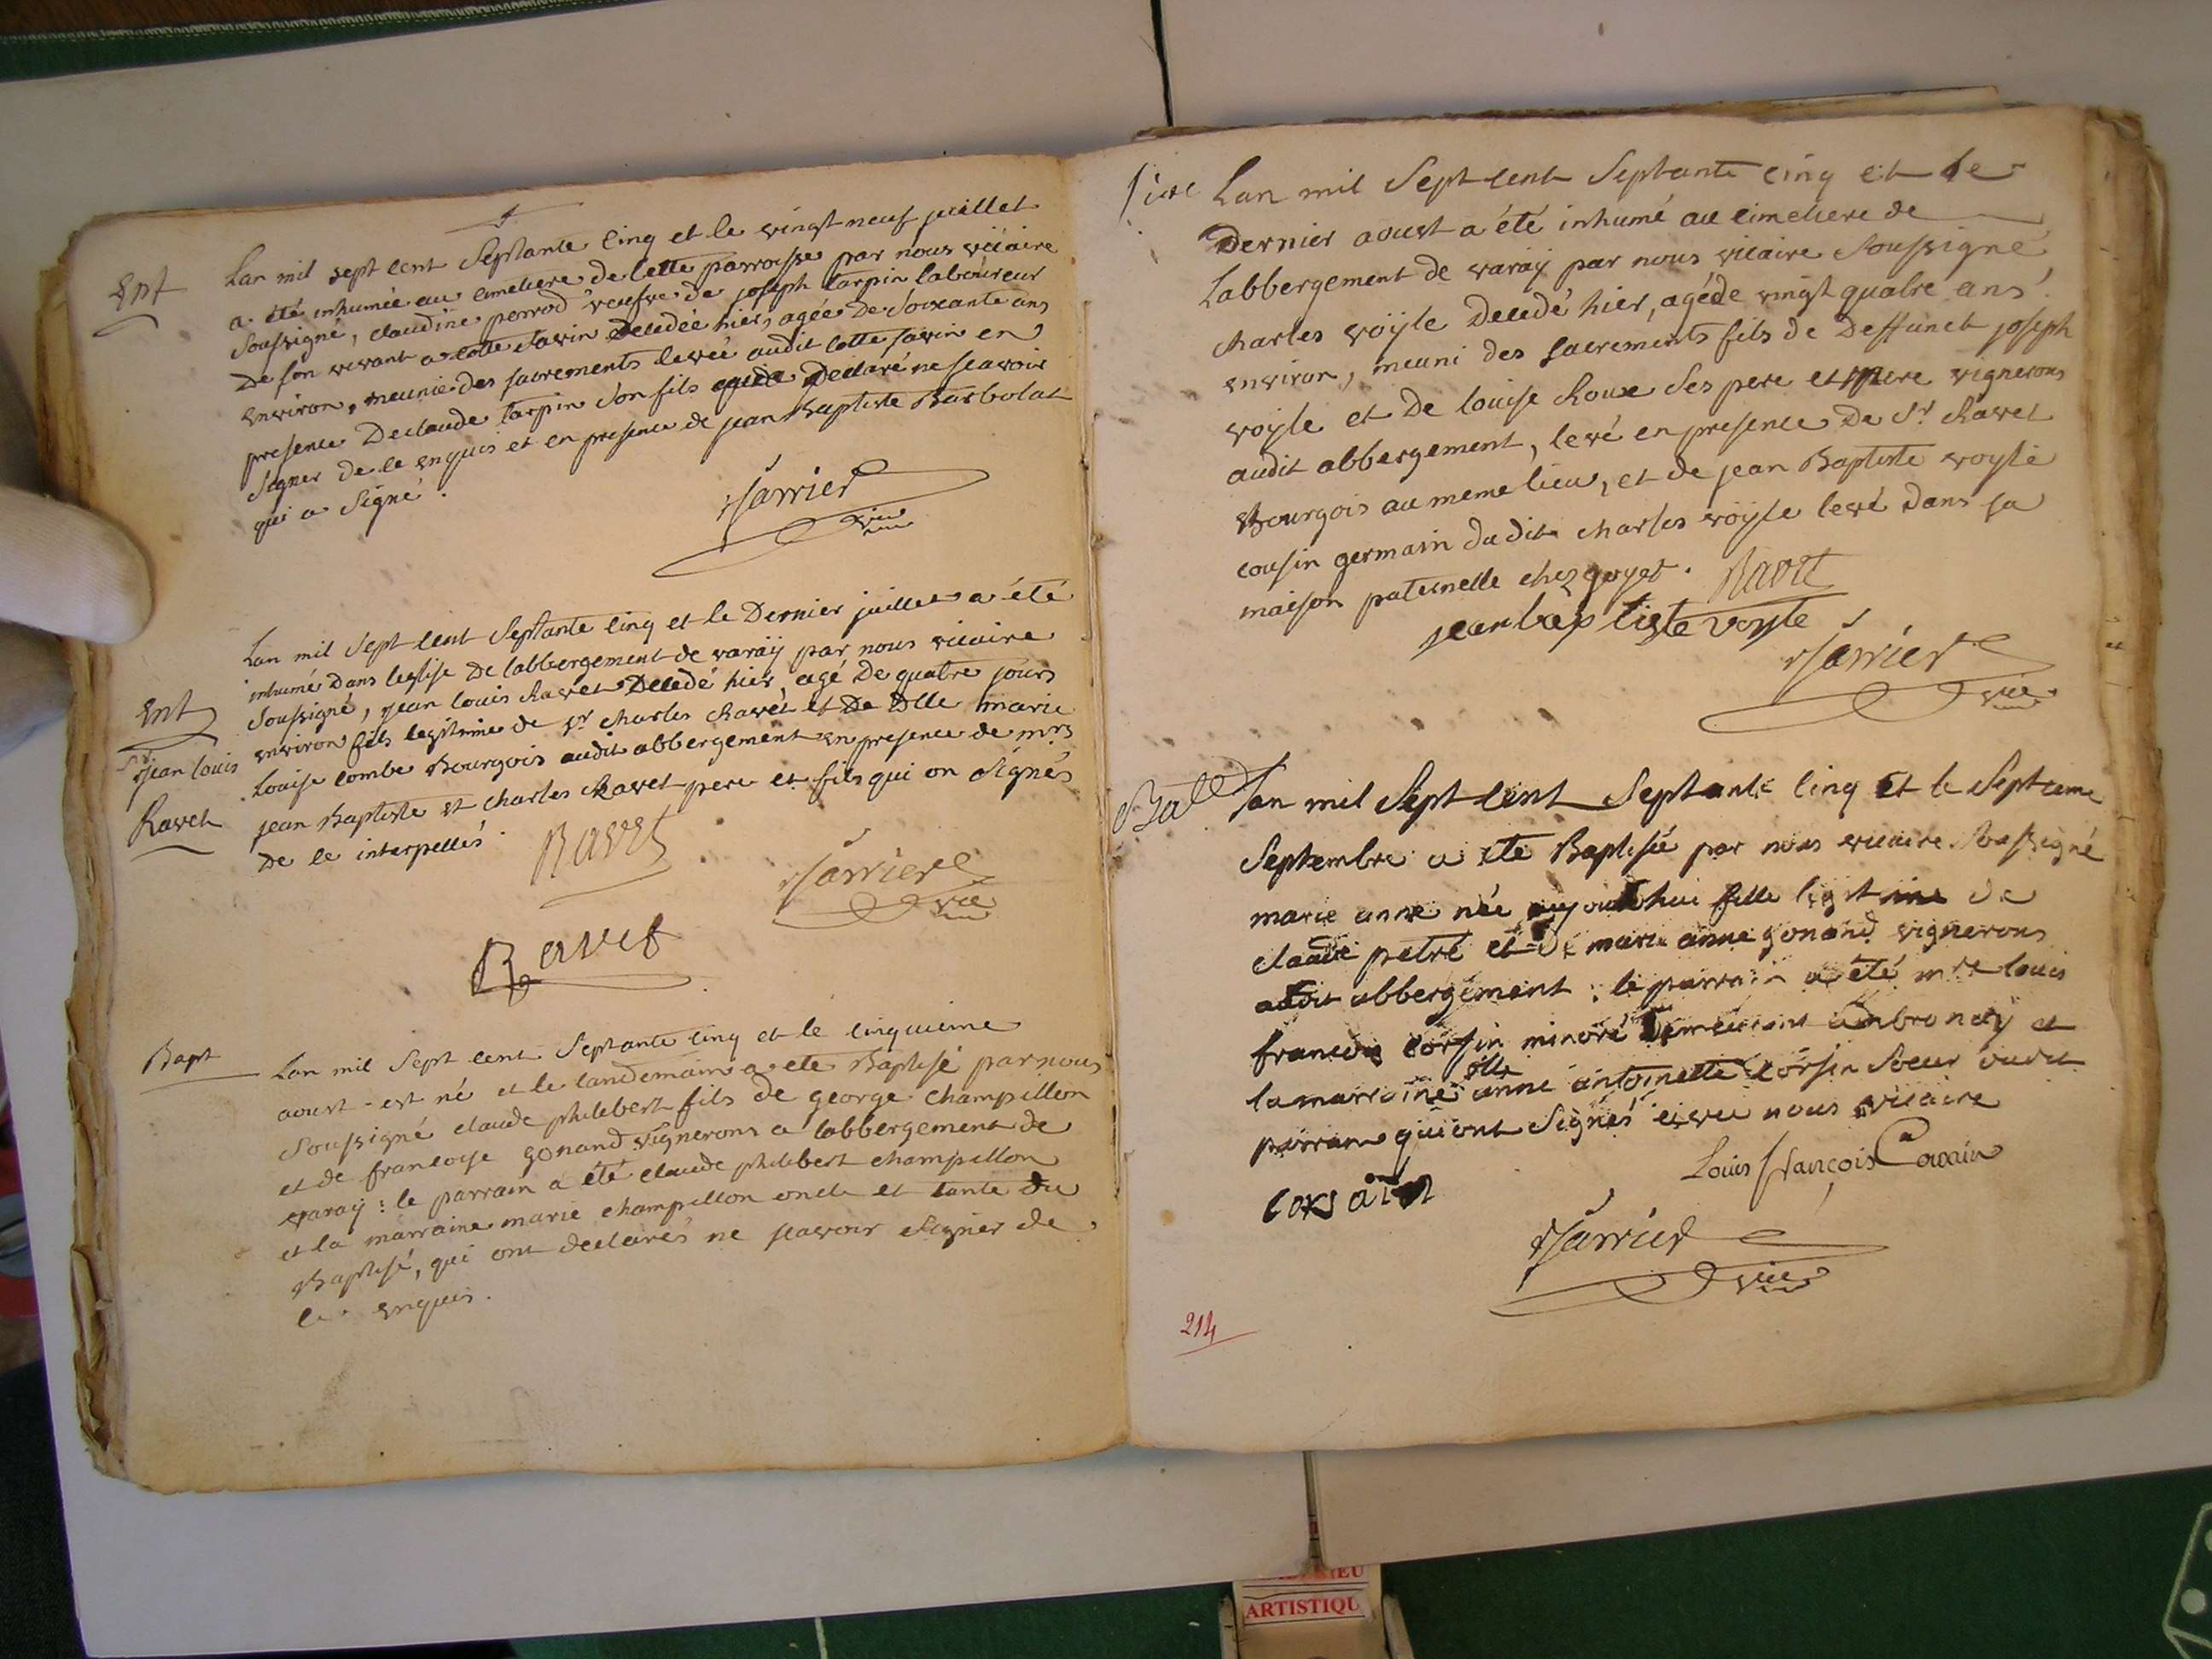 Ent
Lan mil sept cent Septante cinq et le vingt neuf juillet
a été inhumée au cimetiere de cette parroisse par nous vicaire
Soussigné, claudine perrod veufve de joseph tarpin laboureur
De son vivant a cotte savin Decedée hier, agée De Soixante ans
environ, meunie des sacrements levée audit cotte savin en
presence De claude tarpin son fils qui a Declaré ne scavoir
signer de ce enquis et en presence de jean Baptiste Barbolat
qui a Signé.
Jarrier
vic
Ent
Sr jean louis
Ravet
Lan mil Sept cent Septante cinq et le Dernier juillet a été
inhumé Dans leglise De labbergement de varaÿ par nous vicaire
Soussigné, jean louis Ravet Decedé hier, agé De quatre jours
environ fils legitime de Sr charles Ravet et De Dlle marie
Louise combe Bourgois audit abbergement en presence de mrs
jean Baptiste et charles Ravet pere et fils qui on Signés
De ce interpellés.
Ravet
Jarrier
vic
Ravet
Bapt
Lan mil Sept cent Septante cinq et le cinquieme
aoust est né et le landemain a ete Baptisé par nous
Soussigné claude philibert fils de george champillon
et de francoise gonand vignerons a labbergement de
varaÿ : le parrain a été claude philibert champillon
et la marraine marie champillon oncle et tante du
Baptisé, qui ont declarés ne scavoir Signer de
ce enquis.
Lan mil Sept cent Septante cinq et le
Dernier aoust a été inhumé au cimetiere de
Labbergement de varaÿ par nous vicaire Soussigné
charles voÿle Decedé hier, agéde vingt quatre ans
environ, meuni des sacrements fils de Deffunct joseph
voÿle et De louise Roux Ses pere et mere vignerons
audit abbergement, levé en presence De Sr Ravet
Bourgois au meme lieu, et de jean Baptiste voyle
cousin germain dudit charles voÿle levé dans sa
maison paternelle chez goyet.
Ravet
jean baptiste voyle
Jarrier
vic
Lan mil Sept cent Septante cinq et le Septieme
Septembre a ete Baptisée par nous vicaire Soussigné
marie anne née aujourdhui fille legitime de
claude petre et de marie anne gonand vignerons
audit abbergement : le parrain a été mre louis
francois corsin minoré Demeurant a ambronaÿ et
la marraine dlle anne antoinette corsin Soeur dudit
parrain qui ont Signés avec nous vicaire
Louis françois Corsain
corsain
Jarrier
vic
214
ARTISTIQU